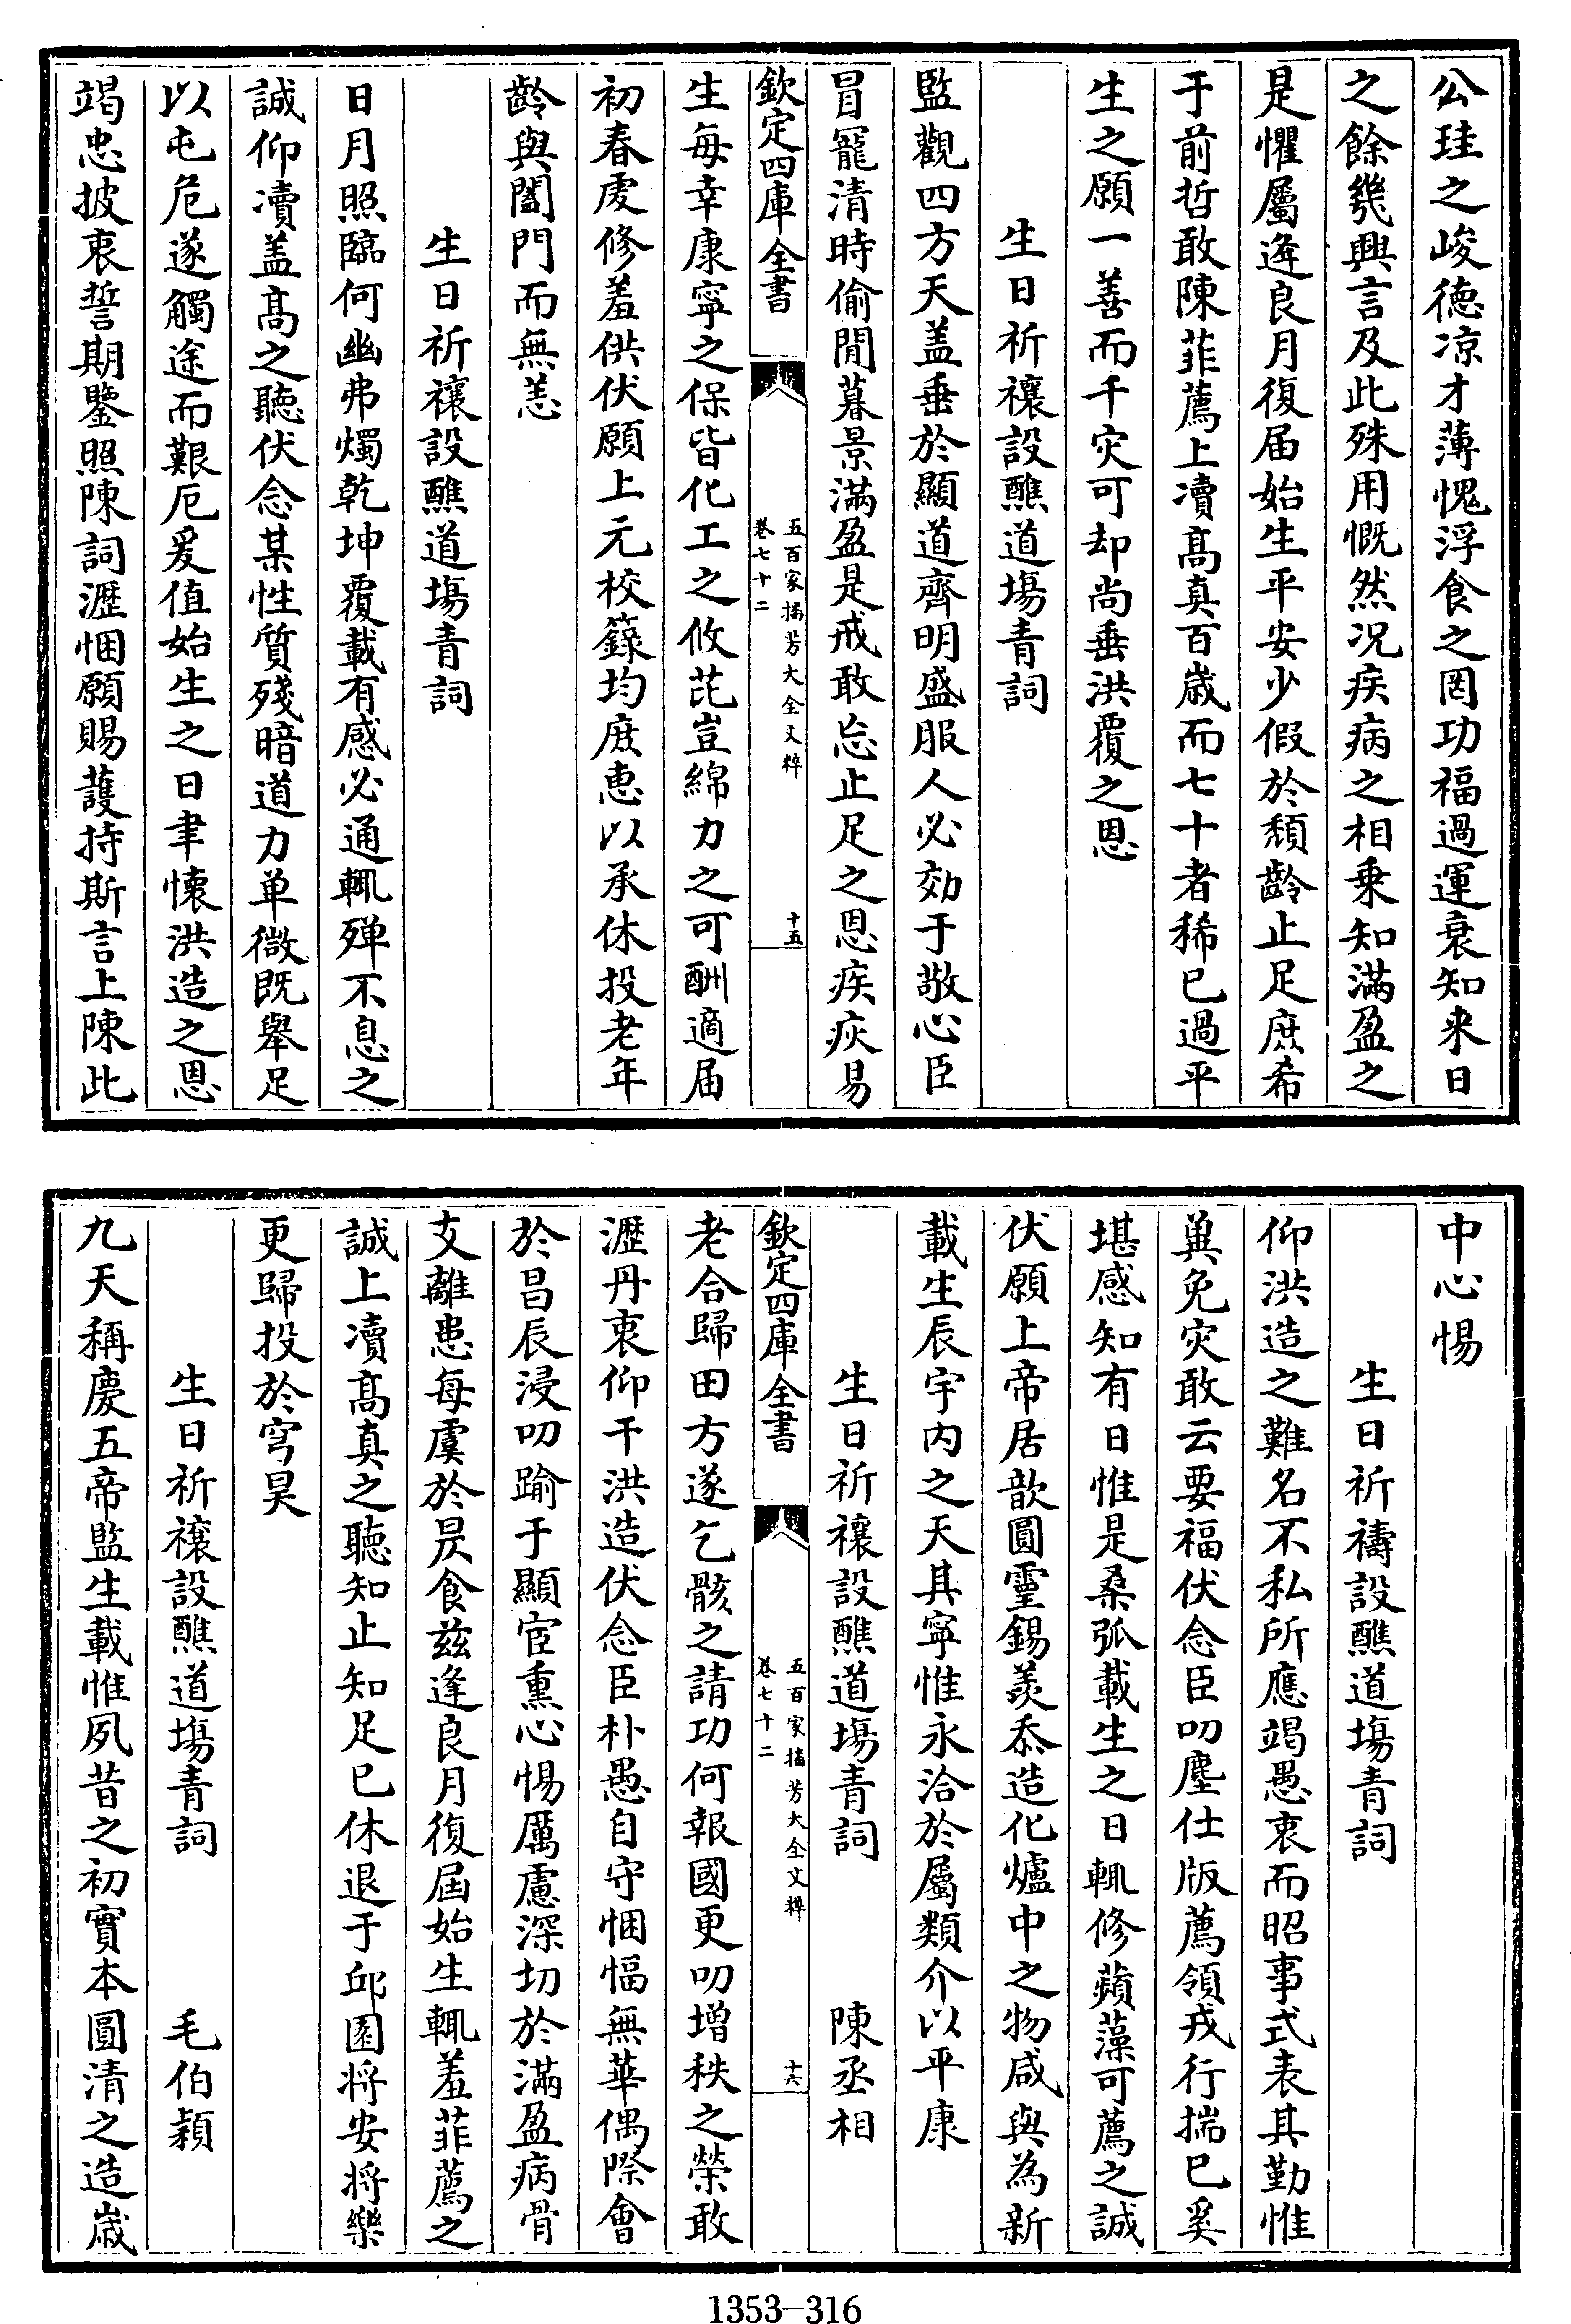 公珪之峻德凉才薄愧浮食之罔功福過運衰知来日
之餘幾興言及此殊用慨然况疾病之相乗知滿盈之
是懼屬逄良月復届始生平安少假於頽齡止足庶希
于前哲敢陳菲薦上凟髙真百嵗而七十者稀已過平
生之願一善而千灾可却尚垂洪覆之恩
生日祈禳設醮道塲青詞
監觀四方天盖垂於顯道齊明盛服人必効于敬心臣
冒寵清時偷閒暮景滿盈是戒敢忘止足之恩疾疢易
欽定四庫全書
五百家播芳大全文粹
卷七十二
十五
生每幸康寧之保皆化工之攸芘豈綿力之可酬適届
初春䖍修羞供伏願上元校籙均庶恵以承休投老年
齡與闔門而無恙
生日祈禳設醮道塲青詞
日月照臨何幽弗燭乾坤覆載有感必通輒殫不息之
誠仰凟盖髙之聽伏念某性質殘暗道力单微既舉足
以屯危遂觸途而艱厄爰值始生之日聿懐洪造之恩
竭忠披衷誓期鑒照陳詞瀝悃願賜䕶持斯言上陳此
中心惕
生日祈禱設醮道塲青詞
仰洪造之難名不私所應竭愚衷而昭事式表其勤惟
兾免灾敢云要福伏念臣叨塵仕版薦領戎行揣已奚
堪感知有日惟是桑弧載生之日輒修蘋藻可薦之誠
伏願上帝居歆圓靈錫羨忝造化爐中之物咸與為新
載生辰宇内之天其寧惟永洽於屬類介以平康
生日祈禳設醮道塲青詞
陳丞相
欽定四庫全書
五百家播芳大全文粹
卷七十二
十六
老合歸田方遂乞骸之請功何報國更叨增秩之榮敢
瀝丹衷仰干洪造伏念臣朴愚自守悃愊無華偶際會
於昌辰浸叨踰于顯宦熏心惕厲慮深切於滿盈病骨
支離患每虞於昃食兹逢良月復屆始生輒羞菲薦之
誠上凟髙真之聽知止知足已休退于邱園将安将樂
更歸投於穹昊
生日祈禳設醮道塲青詞
毛伯頴
九天稱慶五帝監生載惟夙昔之初實本圓清之造嵗
1353-316